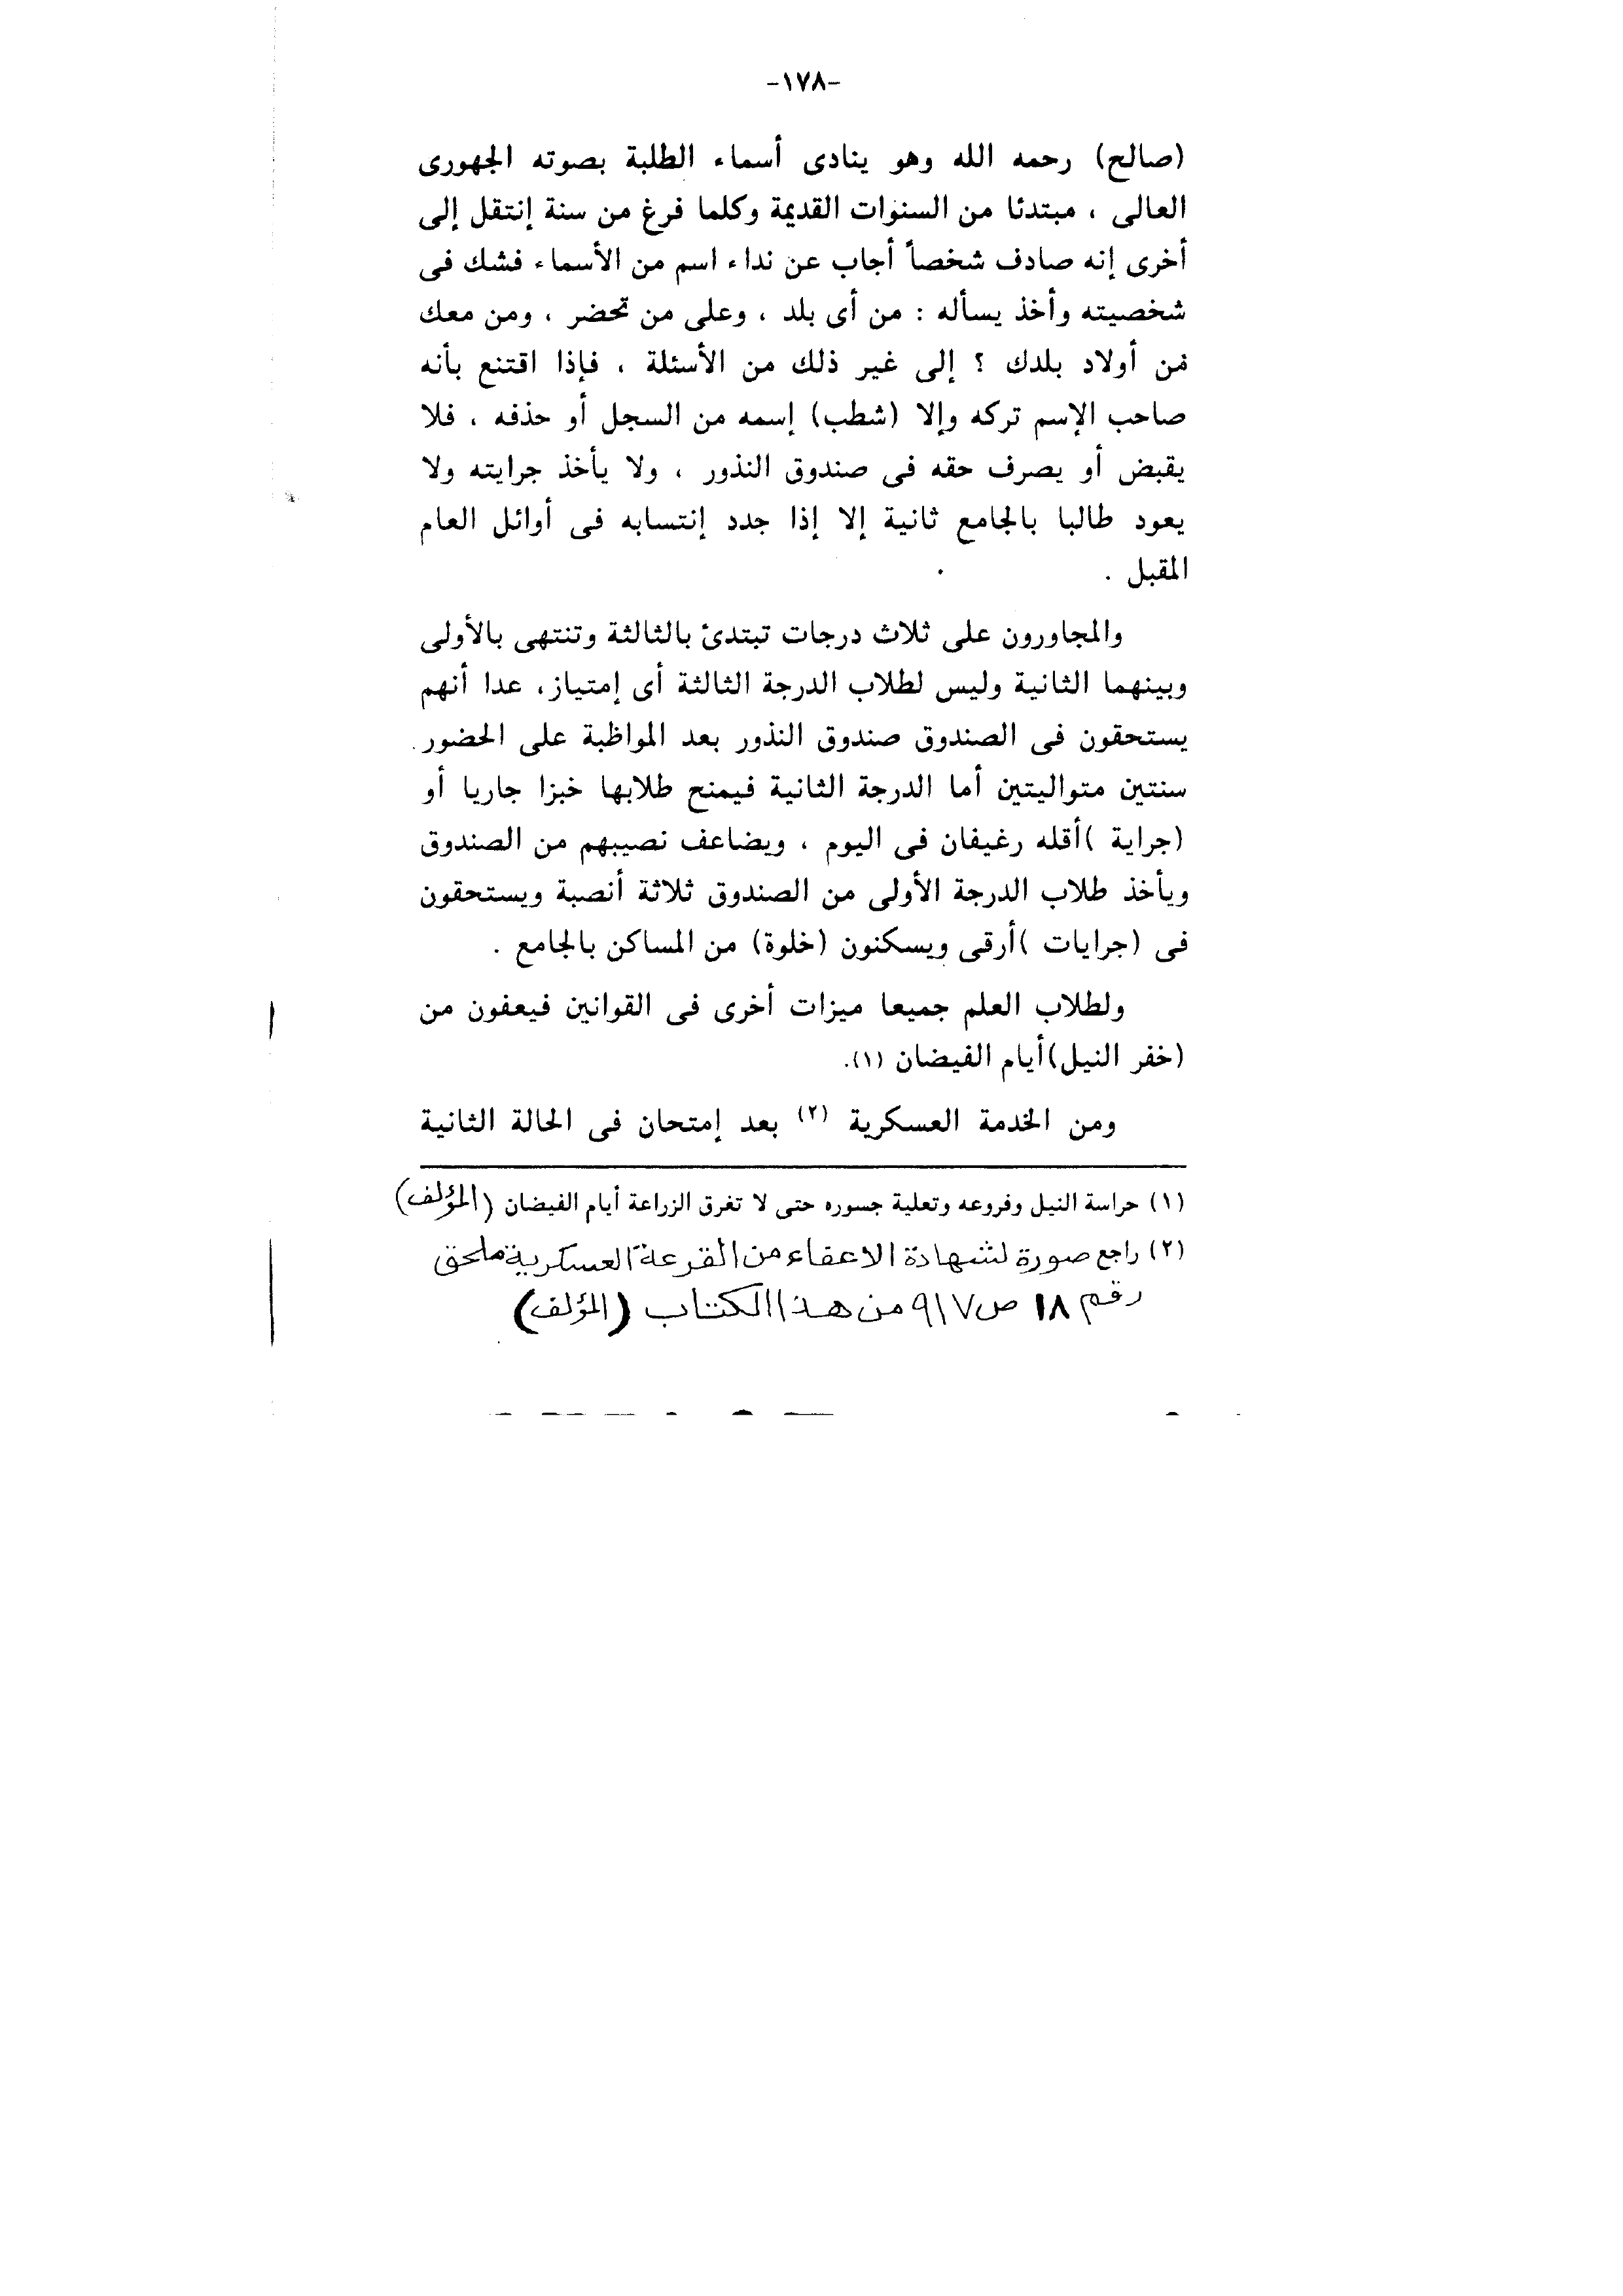 -١٧٨-
(صالح) رحمه الله وهو ينادى أسماء الطلبة بصوته الجهورى
العالى ، مبتدئا من السنوات القديمة وكلما فرغ من سنة إنتقل إلى
أخرى إنه صادف شخصاً أجاب عن نداء اسم من الأسماء فشك فى
شخصيته وأخذ يسأله : من أى بلد ، وعلى من تحضر ، ومن معك
من أولاد بلدك ؟ إلى غير ذلك من الأسئلة ، فإذا اقتنع بأنه
صاحب الإسم تركه وإلا (شطب) إسمه من السجل أو حذفه ، فلا
يقبض أو يصرف حقه فى صندوق النذور ، ولا يأخذ جرايته ولا
يعود طالبا بالجامع ثانية إلا إذا جدد إنتسابه فى أوائل العام
المقبل .
والمجاورون على ثلاث درجات تبتدئ بالثالثة وتنتهى بالأولى
وبينهما الثانية وليس لطلاب الدرجة الثالثة أى إمتياز، عدا أنهم
يستحقون فى الصندوق صندوق النذور بعد المواظبة على الحضور
سنتين متواليتين أما الدرجة الثانية فيمنح طلابها خبزا جاريا أو
(جراية )أقله رغيفان فى اليوم ، ويضاعف نصيبهم من الصندوق
ويأخذ طلاب الدرجة الأولى من الصندوق ثلاثة أنصبة ويستحقون
فى (جرايات )أرقى ويسكنون (خلوة) من المساكن بالجامع .
ولطلاب العلم جميعا ميزات أخرى فى القوانين فيعفون من
(خفر النيل)أيام الفيضان (١).
ومن الخدمة العسكرية (٢) بعد إمتحان فى الحالة الثانية
(١) حراسة النيل وفروعه وتعلية جسوره حتى لا تغرق الزراعة أيام الفيضان (المؤلف)
(٢) راجع صورة لشهادة الاعفاء من القرعة العسكرية ملحق
رقم ١٨ ص ٩١٧ من هذا الكتاب (المؤلف)